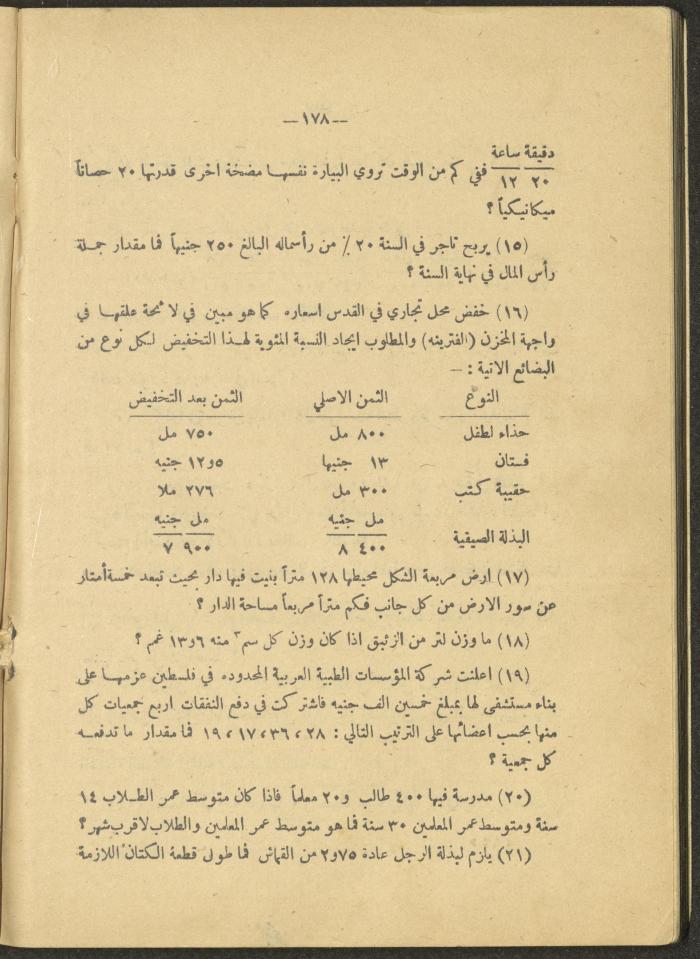 — ١٧٨ —
دقيقة ساعة
٢٠ ١٢ ففي كم من الوقت تروي البيارة نفسها مضخة اخرى قدرتها ٢٠ حصاناً
ميكانيكياً ؟
(١٥) يربح تاجر في السنة ٢٠ ٪ من رأسماله البالغ ٢٥٠ جنيهاً فما مقدار جملة
رأس المال في نهاية السنة ؟
(١٦) خفض محل تجاري في القدس اسعاره كما هو مبين في لائحة علقها في
واجهة المخزن (الفترينه) والمطلوب ايجاد النسبة المئوية لهذا التخفيض لكل نوع من
البضائع الاتية : —
النوع الثمن الاصلي الثمن بعد التخفيض
حذاء لطفل ٨٠٠ مل ٧٥٠ مل
فستان ١٣ جنيها ٥و١٢ جنيه
حقيبة كتب ٣٠٠ مل ٢٧٦ ملا
مل جنيه مل جنيه
البذلة الصيفية ٤٠٠ ٨ ٩٠٠ ٧
(١٧) ارض مربعة الشكل محيطها ١٢٨ متراً بنيت فيها دار بحيث تبعد خمسة أمتار
عن سور الارض من كل جانب فكم متراً مربعاً مساحة الدار ؟
(١٨) ما وزن لتر من الزئبق اذا كان وزن كل سم٣ منه ٦و١٣ غم ؟
(١٩) اعلنت شركة المؤسسات الطبية العربية المحدوده في فلسطين عزمها على
بناء مستشفى لها بمبلغ خمسين الف جنيه فاشتركت في دفع النفقات اربع جمعيات كل
منها بحسب اعضائها على الترتيب التالي : ٢٨ ، ٣٦ ، ١٧ ، ١٩ فما مقدار ما تدفعه
كل جمعية ؟
(٢٠) مدرسة فيها ٤٠٠ طالب و٢٠ معلماً فاذا كان متوسط عمر الطلاب ١٤
سنة ومتوسط عمر المعلمين ٣٠ سنة فما هو متوسط عمر المعلمين والطلاب لاقرب شهر ؟
(٢١) يلزم لبذلة الرجل عادة ٧٥و٢ من القماش فما طول قطعة الكتان اللازمة